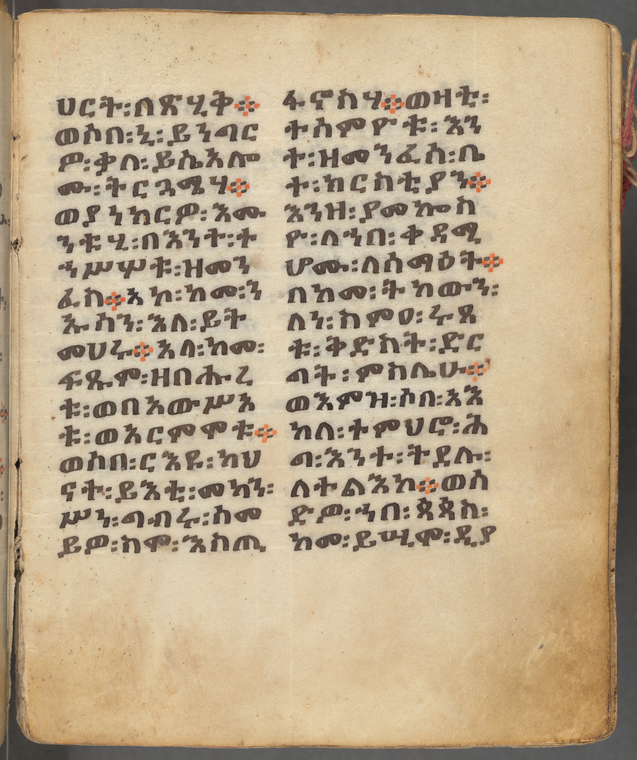 ህርት፡በጽሂቅ።
ወሶበ፡ኒ፡ይንግር
ዎ፡ቃለ፡ይሴአሎ
ሙ፡ትርጓሜሃ።
ወያነክርዎ፡እሙ
ንቱሂ፡በእንተ፡ተ
ኀሥሦቱ፡ዝመን
ፈስ።አኮ፡ከመ፡ን
ኡሳን፡እለ፡ይት
መሀሩ።አላ፡ከመ፡
ፍጹም፡ዘበሑረ
ቱ፡ወበአውሥአ
ቱ፡ወእርምሞቱ።
ወሶበ፡ርእዩ፡ካህ
ናት፡ይእቲ፡መካን፡
ሥነ፡ግብሩ፡ሰመ
ይዎ፡ከሞ፡እስጢ
ፋኖስሃ።ወዛቲ፡
ተስምዮቱ፡እን
ተ፡ዝመንፈስ፡ቤ
ተ፡ክርስቲያን።
እንዝ፡ያመኰስ
ዮ፡ለኀበ፡ቀዳሚ
ሆሙ፡ለሰማዕት።
በከመ፡ትካውን፡
ለነ፡ከምዐ፡ሩጸ
ቱ፡ቅድስት፡ድር
ጓት፡ምስሌሁ።
ወእምዝ፡ሶበ፡አእ
ከለ፡ተምህሮ፡ሕ
ጓ፡እንተ፡ትደሉ፡
ለተልእኮ።ወሰ
ድዎ፡ኀበ፡ጳጳስ፡
ከመ፡ይሢሞ፡ዲያ